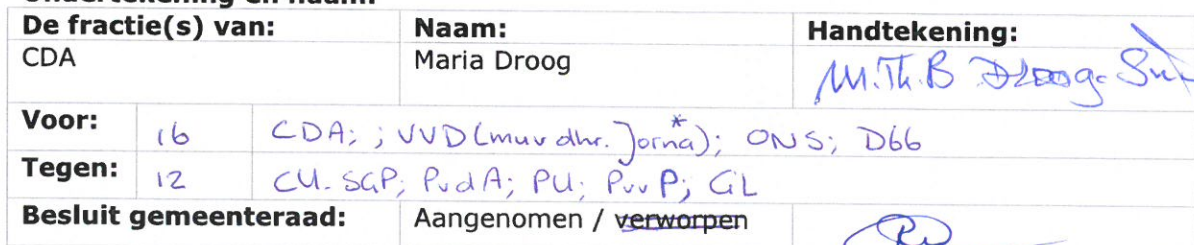 De fractie(s) van: Naam: Handtekening:
CDA Maria Droog M.Th.B Droog-
Voor: 16 CDA; ; VVD (muv dhr. Jorna*); ONS; D66
Tegen: 12 CU-SGP; PvdA; PU; PvvP; GL
Besluit gemeenteraad: Aangenomen / verworpen